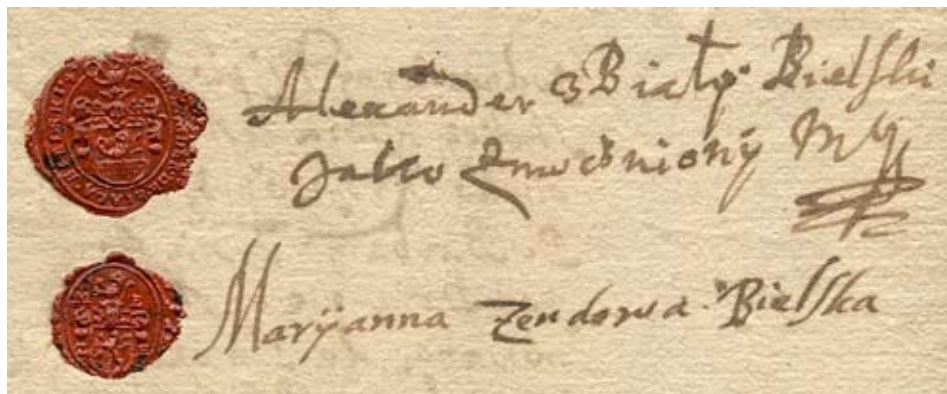 Alexander z Biały Bielski
Jako Umocniony M
Maryanna Zendowa Bielska